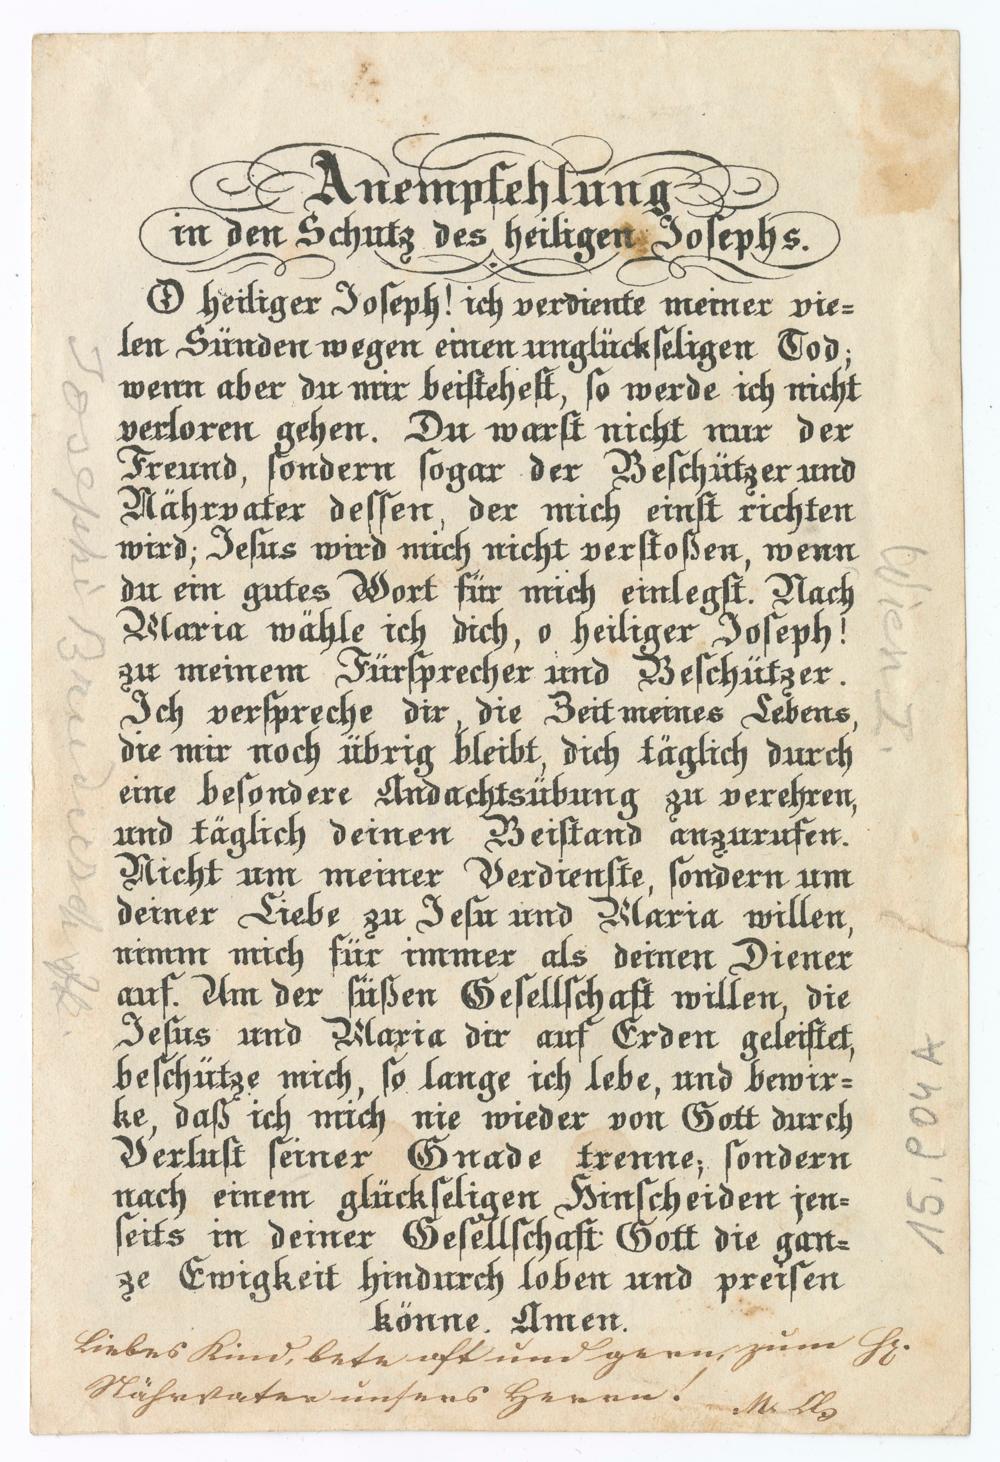 Anempfehlung
in den Schutz des heiligen Josephs.
O heiliger Joseph! ich verdiente meiner vie=
len Sünden wegen einen unglückseligen Tod;
wenn aber du mir beistehest, so werde ich nicht
verloren gehen. Du warst nicht nur der
Freund, sondern sogar der Beschützer und
Nährvater dessen, der mich einst richten
wird; Jesus wird mich nicht verstoßen, wenn
du ein gutes Wort für mich einlegst. Nach
Maria wähle ich dich, o heiliger Joseph!
zu meinem Fürsprecher und Beschützer.
Ich verspreche dir, die Zeit meines Lebens,
die mir noch übrig bleibt, dich täglich durch
eine besondere Andachtsübung zu verehren,
und täglich deinen Beistand anzurufen.
Nicht um meiner Verdienste, sondern um
deiner Liebe zu Jesu und Maria willen,
nimm mich für immer als deinen Diener
auf. Um der süßen Gesellschaft willen, die
Jesus und Maria dir auf Erden geleistet,
beschütze mich, so lange ich lebe, und bewir=
ke, daß ich mich nie wieder von Gott durch
Verlust seiner Gnade trenne; sondern
nach einem glückseligen Hinscheiden jen=
seits in deiner Gesellschaft Gott die gan=
ze Ewigkeit hindurch loben und preisen
könne. Amen.
Liebes Kind, bete oft und gern, zum Hr.
Nährvater unsers Herrn!
Josephi
Wien I.
15. P 04 A